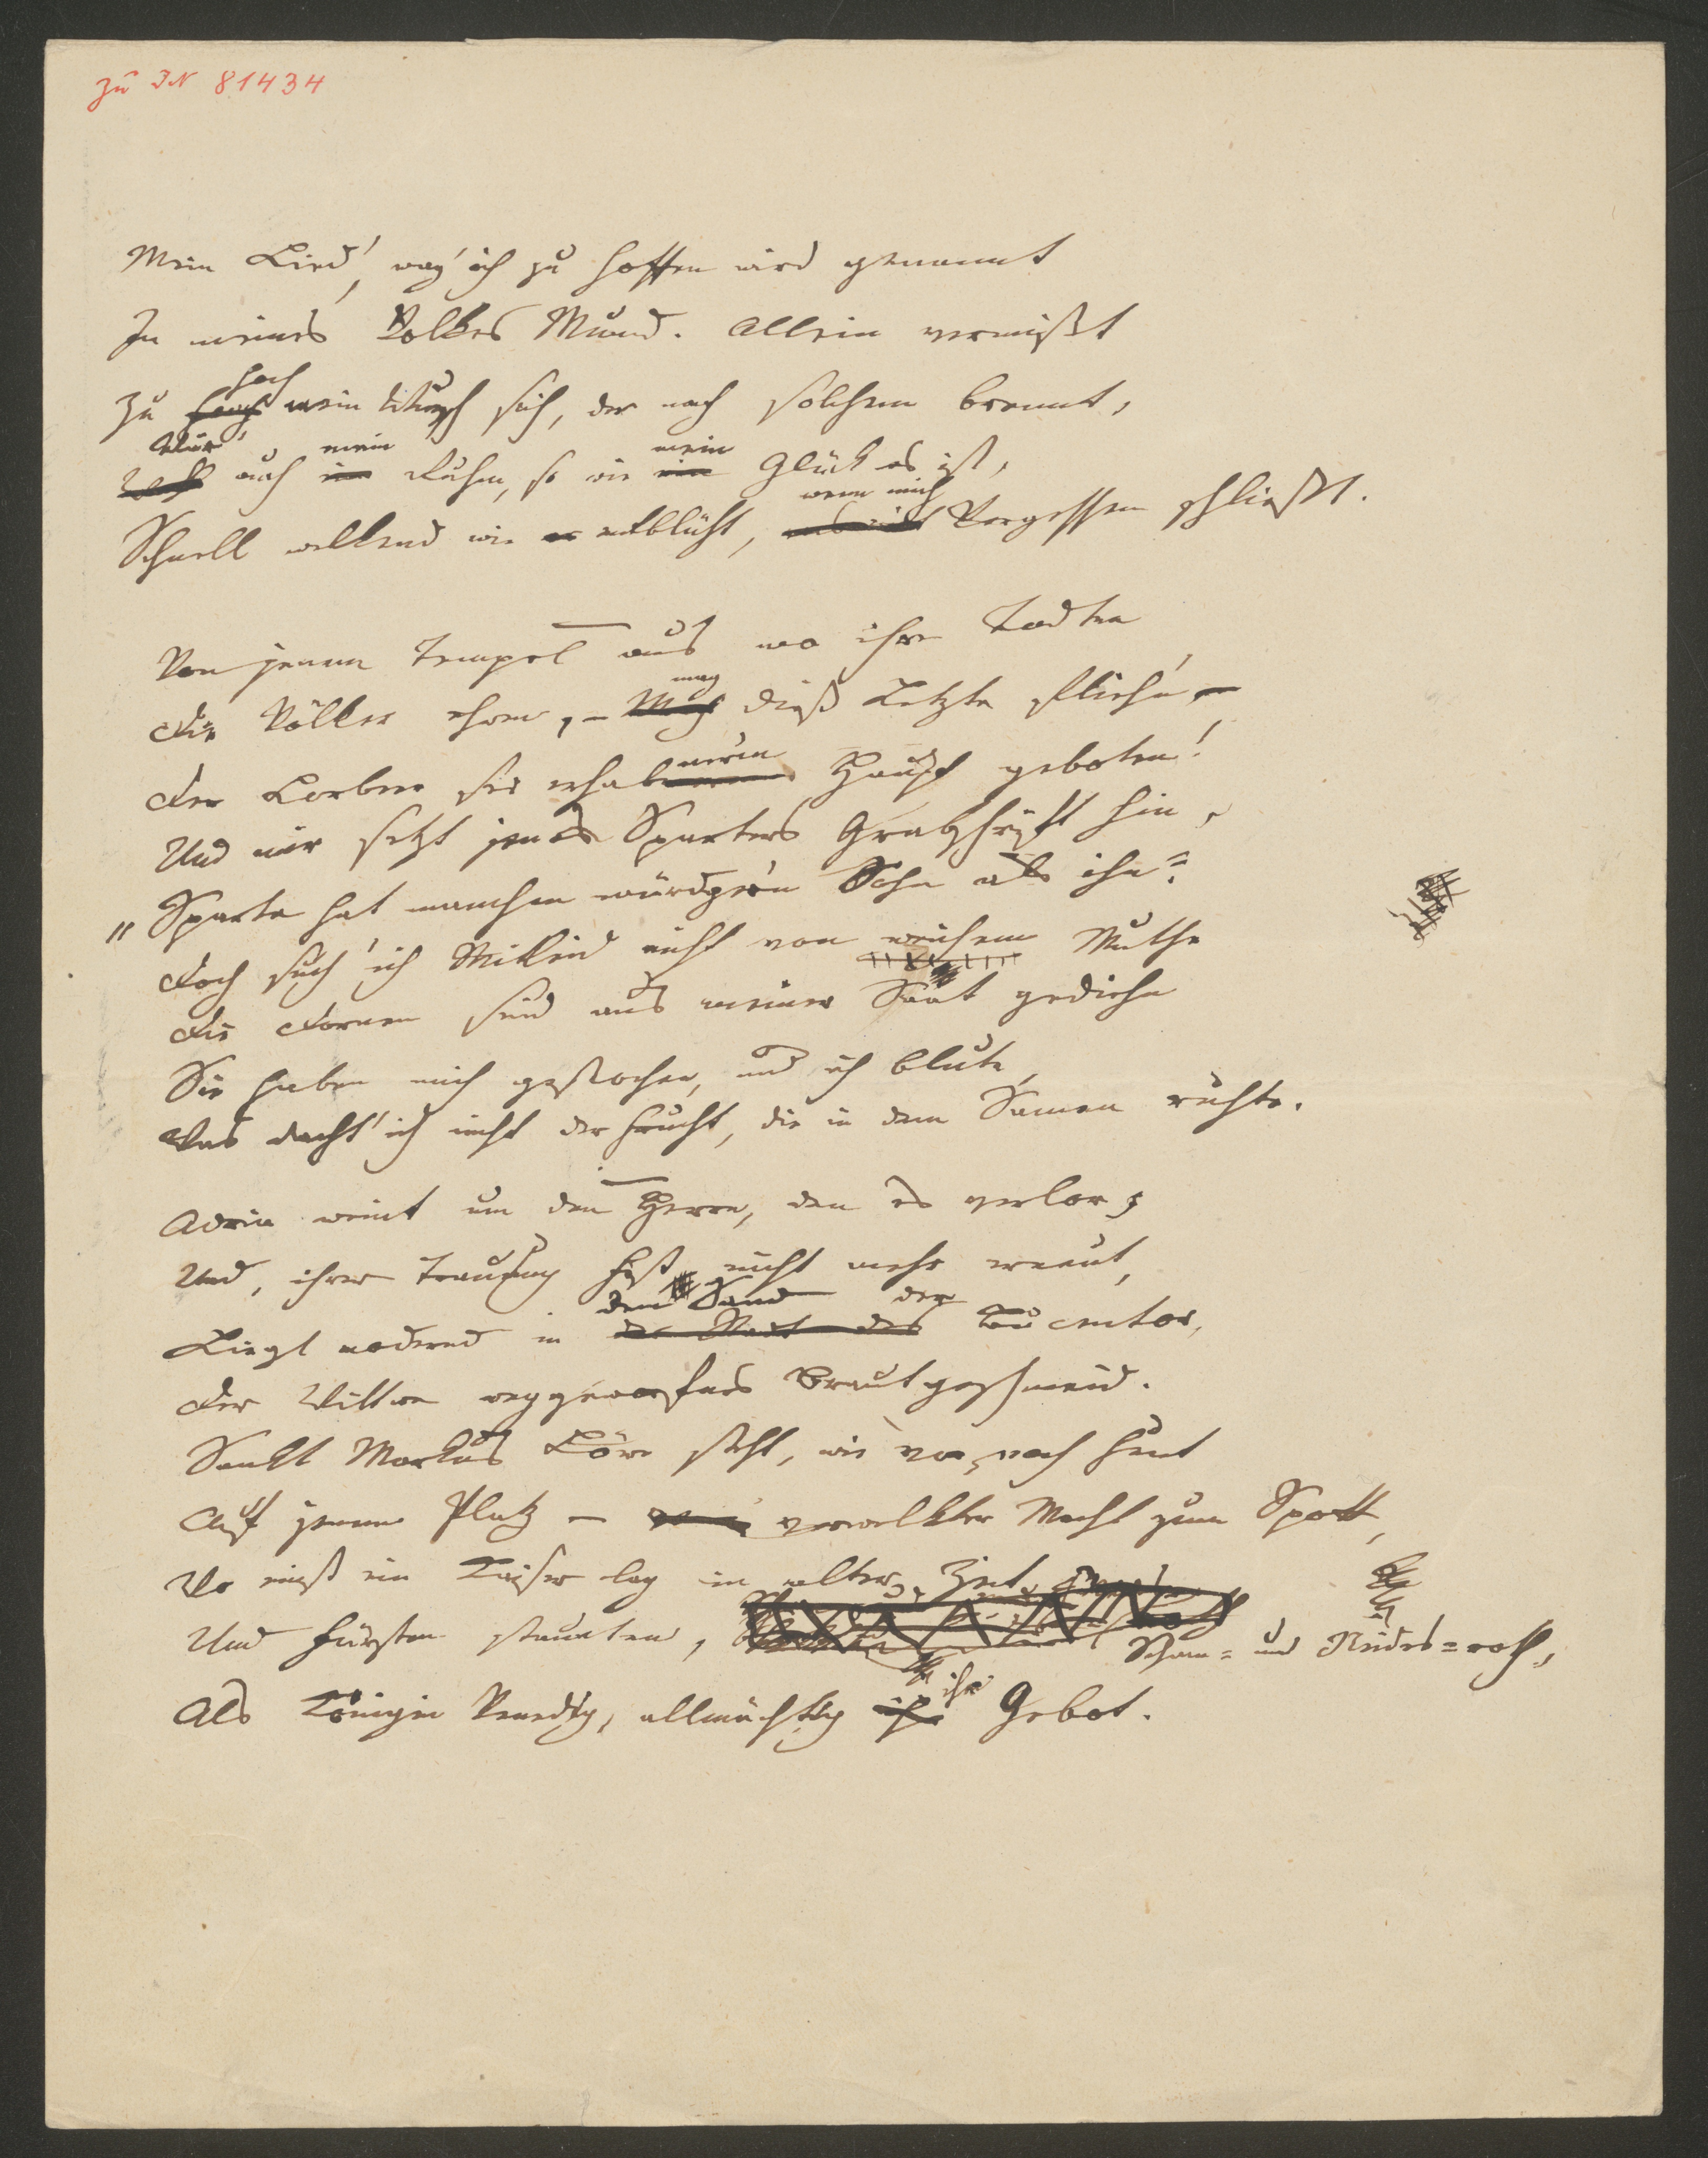 zu IN 81434
Mein Lied', wag' ich zu hoffen wird genannt
In meines Volkes Mund. Allein vermißt
hoch
Zu mein Wunsch sich, der nach solchem brennt,
Wär' mein mein
auch Ruhm, so wie Glück es ist,
wenn mich
Schnell welkend wie entblüht, Vergessen schließt.
Von jenem Tempel aus wo ihre Todten
mag
Die Völker ehren, – dieß Letzte fliehn, –
Der Lorber sei erhabnerm Haupt geboten!
Und mir setzt jenes Sparters Grabschrift hin,
„Sparta hat manchen würdgern Sohn als ihn"
Doch such' ich Mitleid nicht von weichem Muthe
Die Dornen sind aus meiner Saat gediehn
Sie haben mich gestochen, und ich blute,
Was dacht' ich nicht der Frucht, die in dem Samen ruhte.
Adria weint um den Herrn, den es verlor;
Und, ihrer Trauung Fest nicht mehr erneut,
dem Sand des
Liegt modernd in Bucentor,
Der Wittwe weggeworfnes Brautgeschmeid.
Sankt Markus Löwe steht, wie vor, noch heut
Auf jenem Platz – verwelkter Macht zum Spott,
Wo einst ein Kaiser lag in alter Zeit
Und Fürsten staunten, Scham- und Neides-roth,
ihr
Als Königin Venedig, allmächtig Gebot.